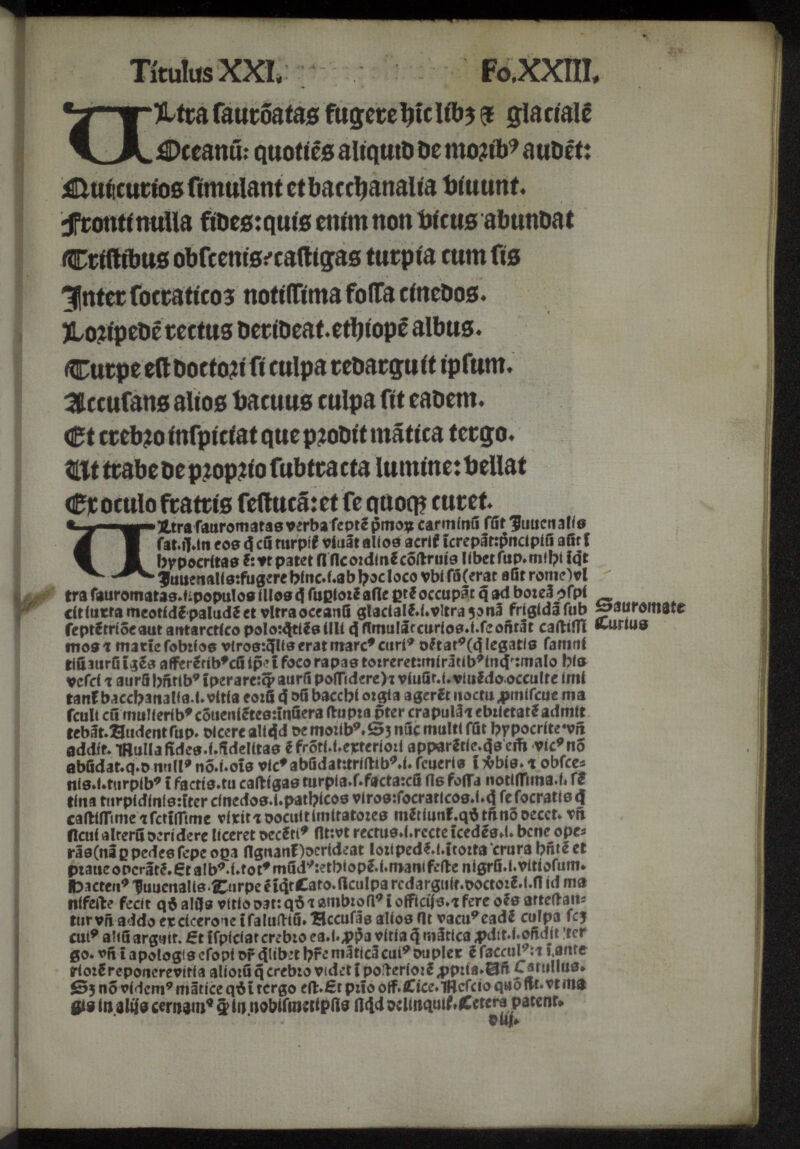 Titulus XXI. Fo.XXIII.
VLtra sauromatas fugere hīc libꝫ ⁊ glacialē
Oceanū: quotiēs aliquid de moribꝰ audēt:
Qui curios simulant et bacchanalia viuunt.
Fronti nulla fides: quis enim non vicus abundat
Tristibus obscenis? castigas turpia cum sis
Inter socraticos notissima fossa cinedos.
Loripedē rectus derideat. ethiopē albus.
Turpe est doctori si culpa redarguit ipsum.
Accusans alios vacuus culpa sit eadem.
Et crebro inspiciat que prodit mātica tergo.
Ut trabe de proprio subtracta lumine: vellat
Ex oculo fratris festucā: et se quoqꝫ curet.
VLtra sauromatas verba septē pmoꝝ carminū sūt Juuenalis
sat.ij. in eos q̄ cū turpiť viuāt alios acriť īcrepāt: pncipiū aūt ī
hypocritas ē: vt patet si sic ordinē cōstruis libet sup. mihi īqt
Juuenalis: fugere hinc.i. ab hoc loco vbi sū(erat aūt rome)vl
tra sauromatas.i. populos illos q̄ supiorē asie ptē occupāt q̄ ad boreā ꝯspi
cit iuxta meotidē paludē et vltra oceanū glacialē.i. vltra zonā frigidā sub
septētrióe aut antarctico polo: qtiēs illi q̄ simulāt curios.i. se oñtāt castissi
mos ⁊ maxīe sobrios viros: q̄lis erat marcꝰ curiꝰ dētatꝰ(q̄ legatis samni
Sauromate
Curius
tiū aurū īgēs afferētibꝰ cū ipē ī foco rapas torreret: mirātibꝰ inq̄: malo his
vesci ⁊ aurū hñtibꝰ īperare: qꝫ aurū possidere)⁊ viuūt.i. viuēdo occulte imi
tant̄ bacchanalia.i. vitia eorū q̄ dū bacchi orgia agerēt noctu ꝓmiscue ma
sculi cū mulieribꝰ cōueniētes: īnūera stupra pter crapulā ⁊ ebrietatē admit
tebāt. Audent sup. dicere aliqd de moribꝰ. Sꝫ nūc multi sūt hypocrite. vñ
addit. Nulla fides.i. fidelitas ē frōti.i. exteriori apparētie. qs em̄ vicꝰ nō
abūdat. q.d nullꝰ nō.i. oīs vicꝰ abūdat: tristibꝰ.i. seueris ī v̄bis. ⁊ obsce=
nis.i. turpibꝰ ī factis. tu castigas turpia.s. facta: cū sis fossa notissima.i. sē
tina turpidinis: īter cinedos.i. pathicos viros: socraticos.i. q̄ se socratis q̄
castissime ⁊ sctīssime vixit ⁊ docuit imitatores mētiunt̄. qd tñ nō decet. vñ
sicui alterū deridere liceret decētiꝰ sit: vt rectus.i. recte īcedēs.i. bene ope=
rās(nā p pedes sepe opa signant̄)derideat loripedē.i. ītorta crura hñtē et
praue operātē. Et albꝰ.i. totꝰ mūdꝰ: ethiopē.i. manifeste nigrū.i. vitiosum.
Hactenꝰ Juuenalis. Turpe ē īqt Cato. si culpa redarguit. doctorē.i. si id ma
nifeste fecit qd alijs vitio dat: qd ⁊ ambrosiꝰ ī officijs. ⁊ fere oēs attestan=
tur vñ addo ex cicerone ī salustiū. Accusās alios sit vacuꝰ eadē culpa scꝫ
cuiꝰ aliū arguit. Et īspiciat crebro ea.i. ꝓpa vitia q̄ mātica ꝓdit.i. oñdit ter
go. vñ ī apologis esopi dr̄ q̄libet hr̄e māticā cuiꝰ duplex ē sacculꝰ: ⁊ ī ante
riorē reponere vitia aliorū q̄ crebro videt ī posteriorē ꝓpria. Uñ Catullus.
Sꝫ nō videmꝰ mātice qd ī tergo est. Et prio off. Cice. Nescio quō fit. vt ma
gis in alijs cernamꝰ q̄ in nobismetipsis siqd delinquiť. Cetera patent.